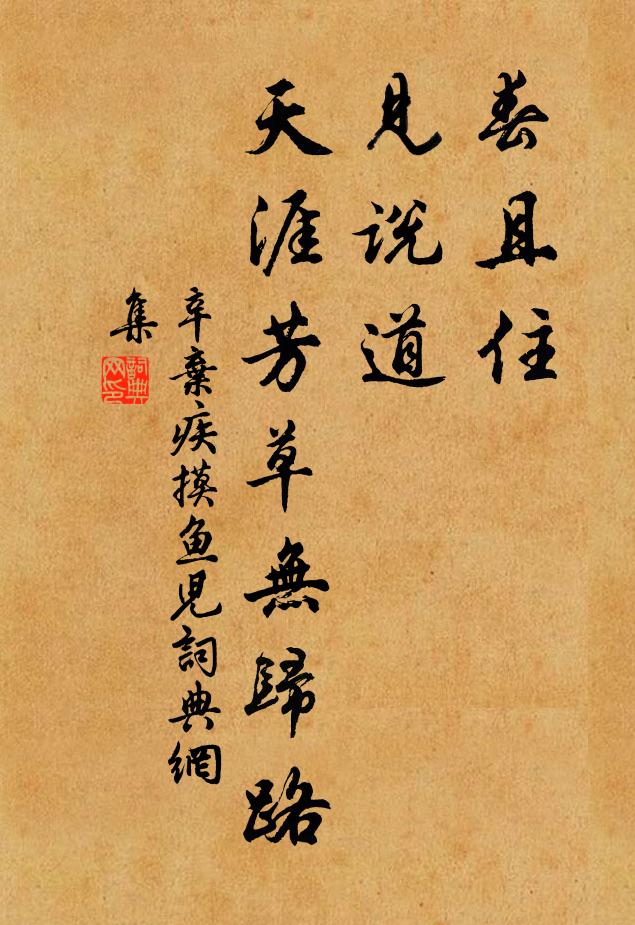 春且住
見說道
天涯芳草無歸路
辛棄疾摸魚兒詞典網
集
詞典網印